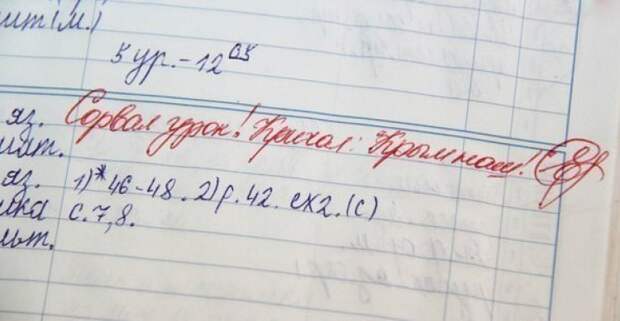 ит(м.)
5 ур. - 12 05
яз. Сорвал урок! Кричал: Крым наш!
ят.
яз. 1)* 46-48. 2) р. 42. ex2. (с)
ка с. 7, 8.
ьт.